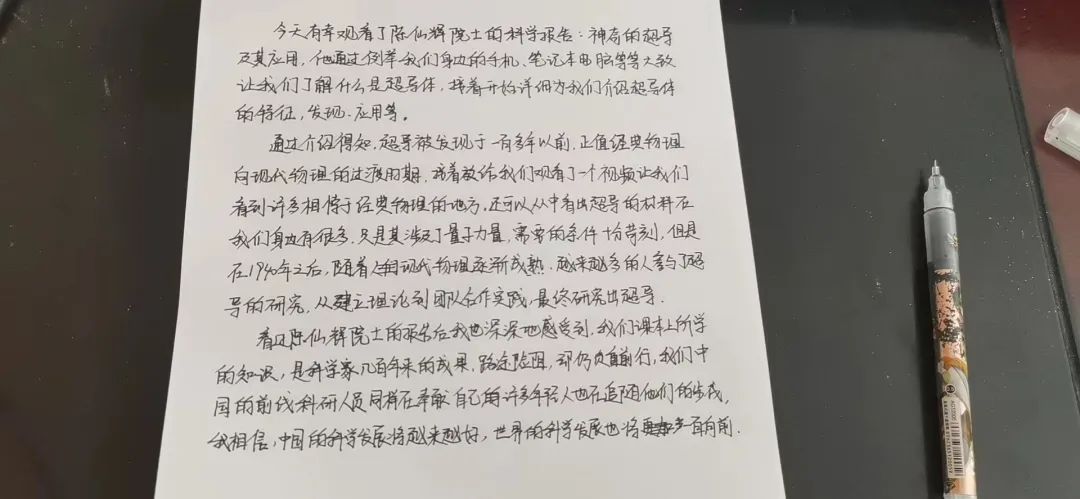 今天有幸观看了陈仙辉院士的科学报告：神奇的超导
及其应用，他通过例举我们身边的手机、笔记本电脑等等大致
让我们了解什么是超导体，接着开始详细为我们介绍超导体
的特征，发现、应用等。
通过介绍得知，超导被发现于一百多年以前，正值经典物理
向现代物理的过渡时期，接着放给我们观看了一个视频让我们
看到许多相悖于经典物理的地方，还可以从中看出超导的材料在
我们身边有很多，只是其涉及了量子力量，需要的条件十分苛刻，但是
在1940年之后，随着人们现代物理逐渐成熟，越来越多的人参与了超
导的研究，从建立理论到团队合作实践，最终研究出超导.
看过陈仙辉院士的报告后我也深深地感受到，我们课本上所学
的知识，是科学家几百年来的成果，路途险阻，却仍负重前行，我们中
国的前线科研人员同样在奉献自己的许多年轻人也在追随他们的步伐，
我相信，中国的科学发展将越来越好，世界的科学发展也将一直向前.